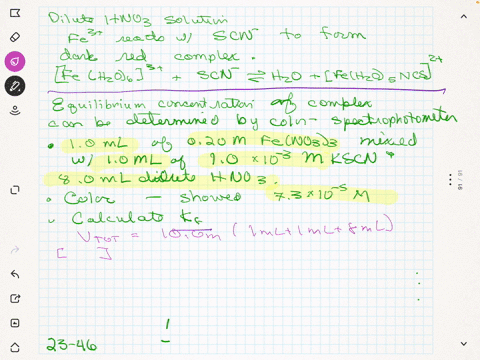 Dilute HNO3 Solution
Fe³⁺ reacts w/ SCN⁻ to form
dark red complex.
[Fe(H2O)6]³⁺ + SCN⁻ ⇌ H2O + [Fe(H2O)5NCS]²⁺
Equilibrium concentration of complex
can be determined by spectrophotometer
• 1.0 mL of 0.20 M Fe(NO3)3 mixed
w/ 1.0 mL of 1.0 × 10⁻³ M KSCN +
8.0 mL dilute HNO3.
• Color – showed 7.3 × 10⁻⁵ M
• Calculate Kf
VTOT = 10.0m (1mL + 1mL + 8mL)
[ ]
23-46